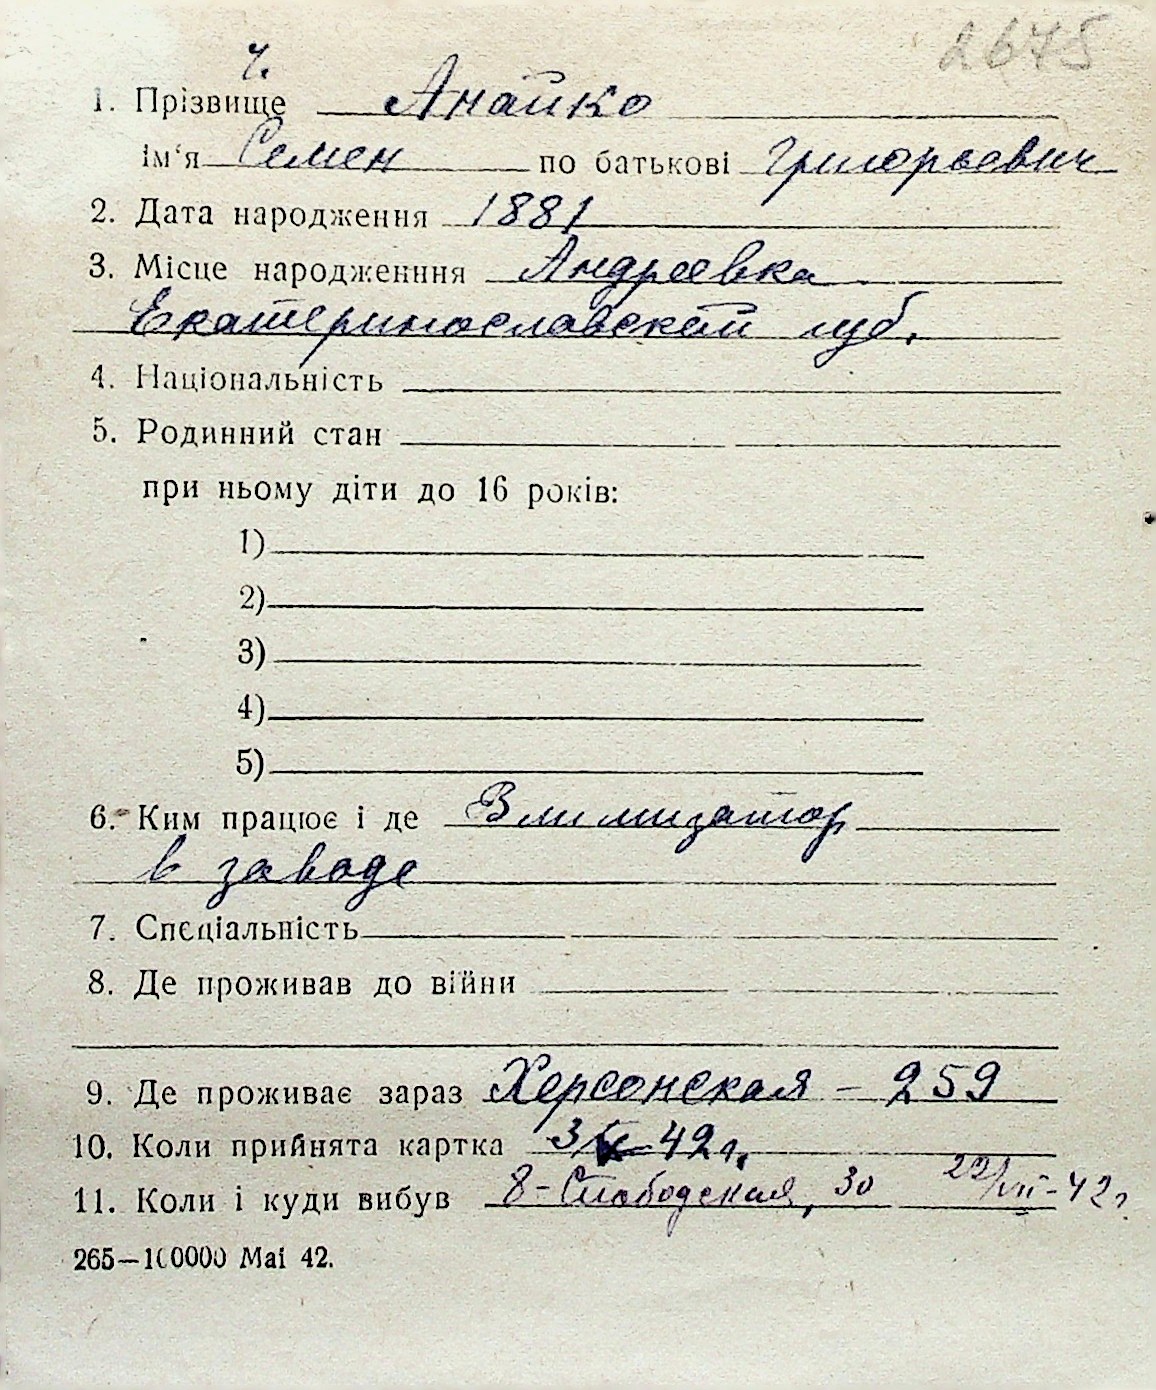 2675
ч.
1. Прізвище Анайко
ім'я Семен по батькові Григорьевич
2. Дата народження 1881
3. Місце народженння Андреевка
Екатеринославской губ.
4. Національність
5. Родинний стан
при ньому діти до 16 років:
1)
2)
3)
4)
5)
6. Ким працює і де
в заводе
7. Спеціальність
8. Де проживав до війни
9. Де проживає зараз Херсонская - 259
10. Коли прийнята картка 42 г.
11. Коли і куди вибув 8-Слободская, 30 22/VII-42 г
265—100000 Маі 42.